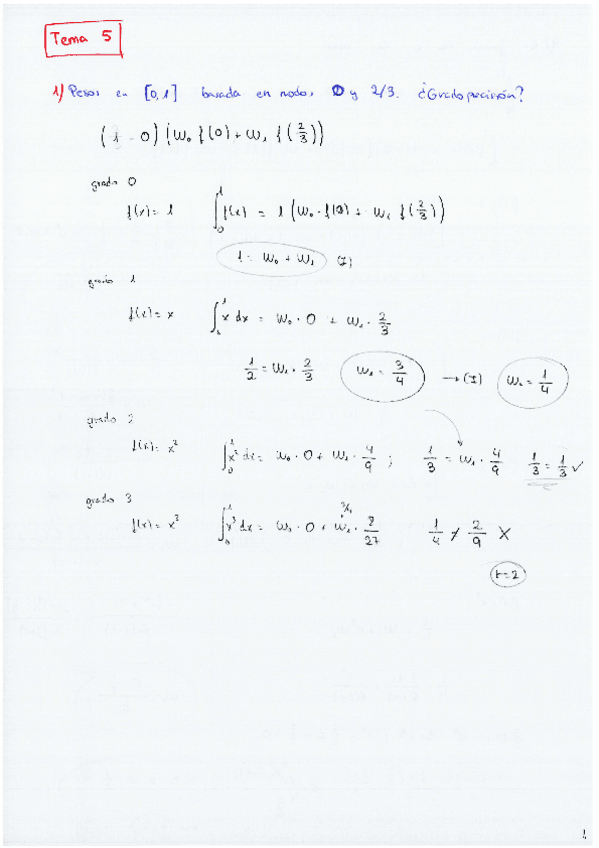 Tema 5
1) Pesos en [0,1] basada en nodos 0 y 2/3. ¿Grado precisión?
(1 - 0) (W₀ f(0) + W₁ f(2/3))
grado 0
f(x) = 1 ∫₀¹ f(x) = 1 (W₀ · f(0) + W₁ f(2/3))
1 = W₀ + W₁ (I)
grado 1
f(x) = x ∫₀¹ x dx = W₀ · 0 + W₁ · 2/3
1/2 = W₁ · 2/3 W₁ = 3/4 → (I) W₀ = 1/4
grado 2
f(x) = x² ∫₀¹ x² dx = W₀ · 0 + W₁ · 4/9 ; 1/3 = W₁ · 4/9 1/3 = 1/3 ✓
grado 3
f(x) = x³ ∫₀¹ x³ dx = W₀ · 0 + W₁ · 8/27 3/4 1/4 ≠ 2/9 X
r=2
1